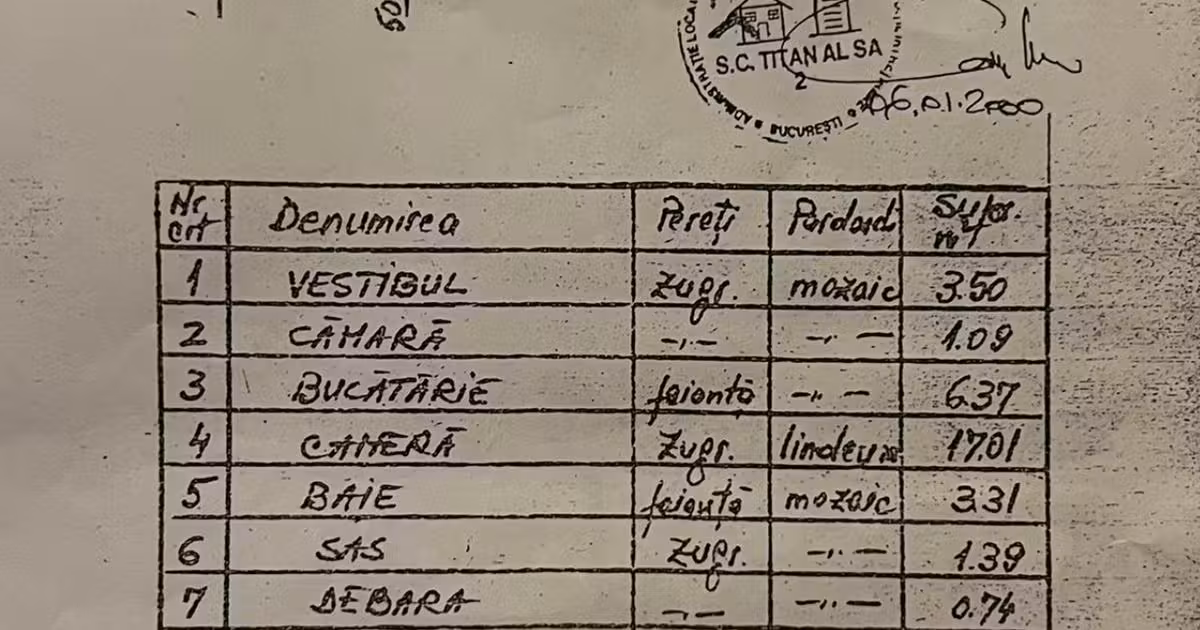 S.C. TITAN AL SA
2
BUCUREȘTI
06.01.2000
Nr. crt Denumirea Pereți Pardos Supr.
1 VESTIBUL zugr. mozaic 3.50
2 CĂMARĂ —.— —..— 1.09
3 BUCĂTĂRIE faianță —..— 6.37
4 CAMERĂ zugr. linoleum 17.01
5 BAIE faianță mozaic 3.31
6 SAS zugr. —..— 1.39
7 DEBARA —..— —..— 0.74